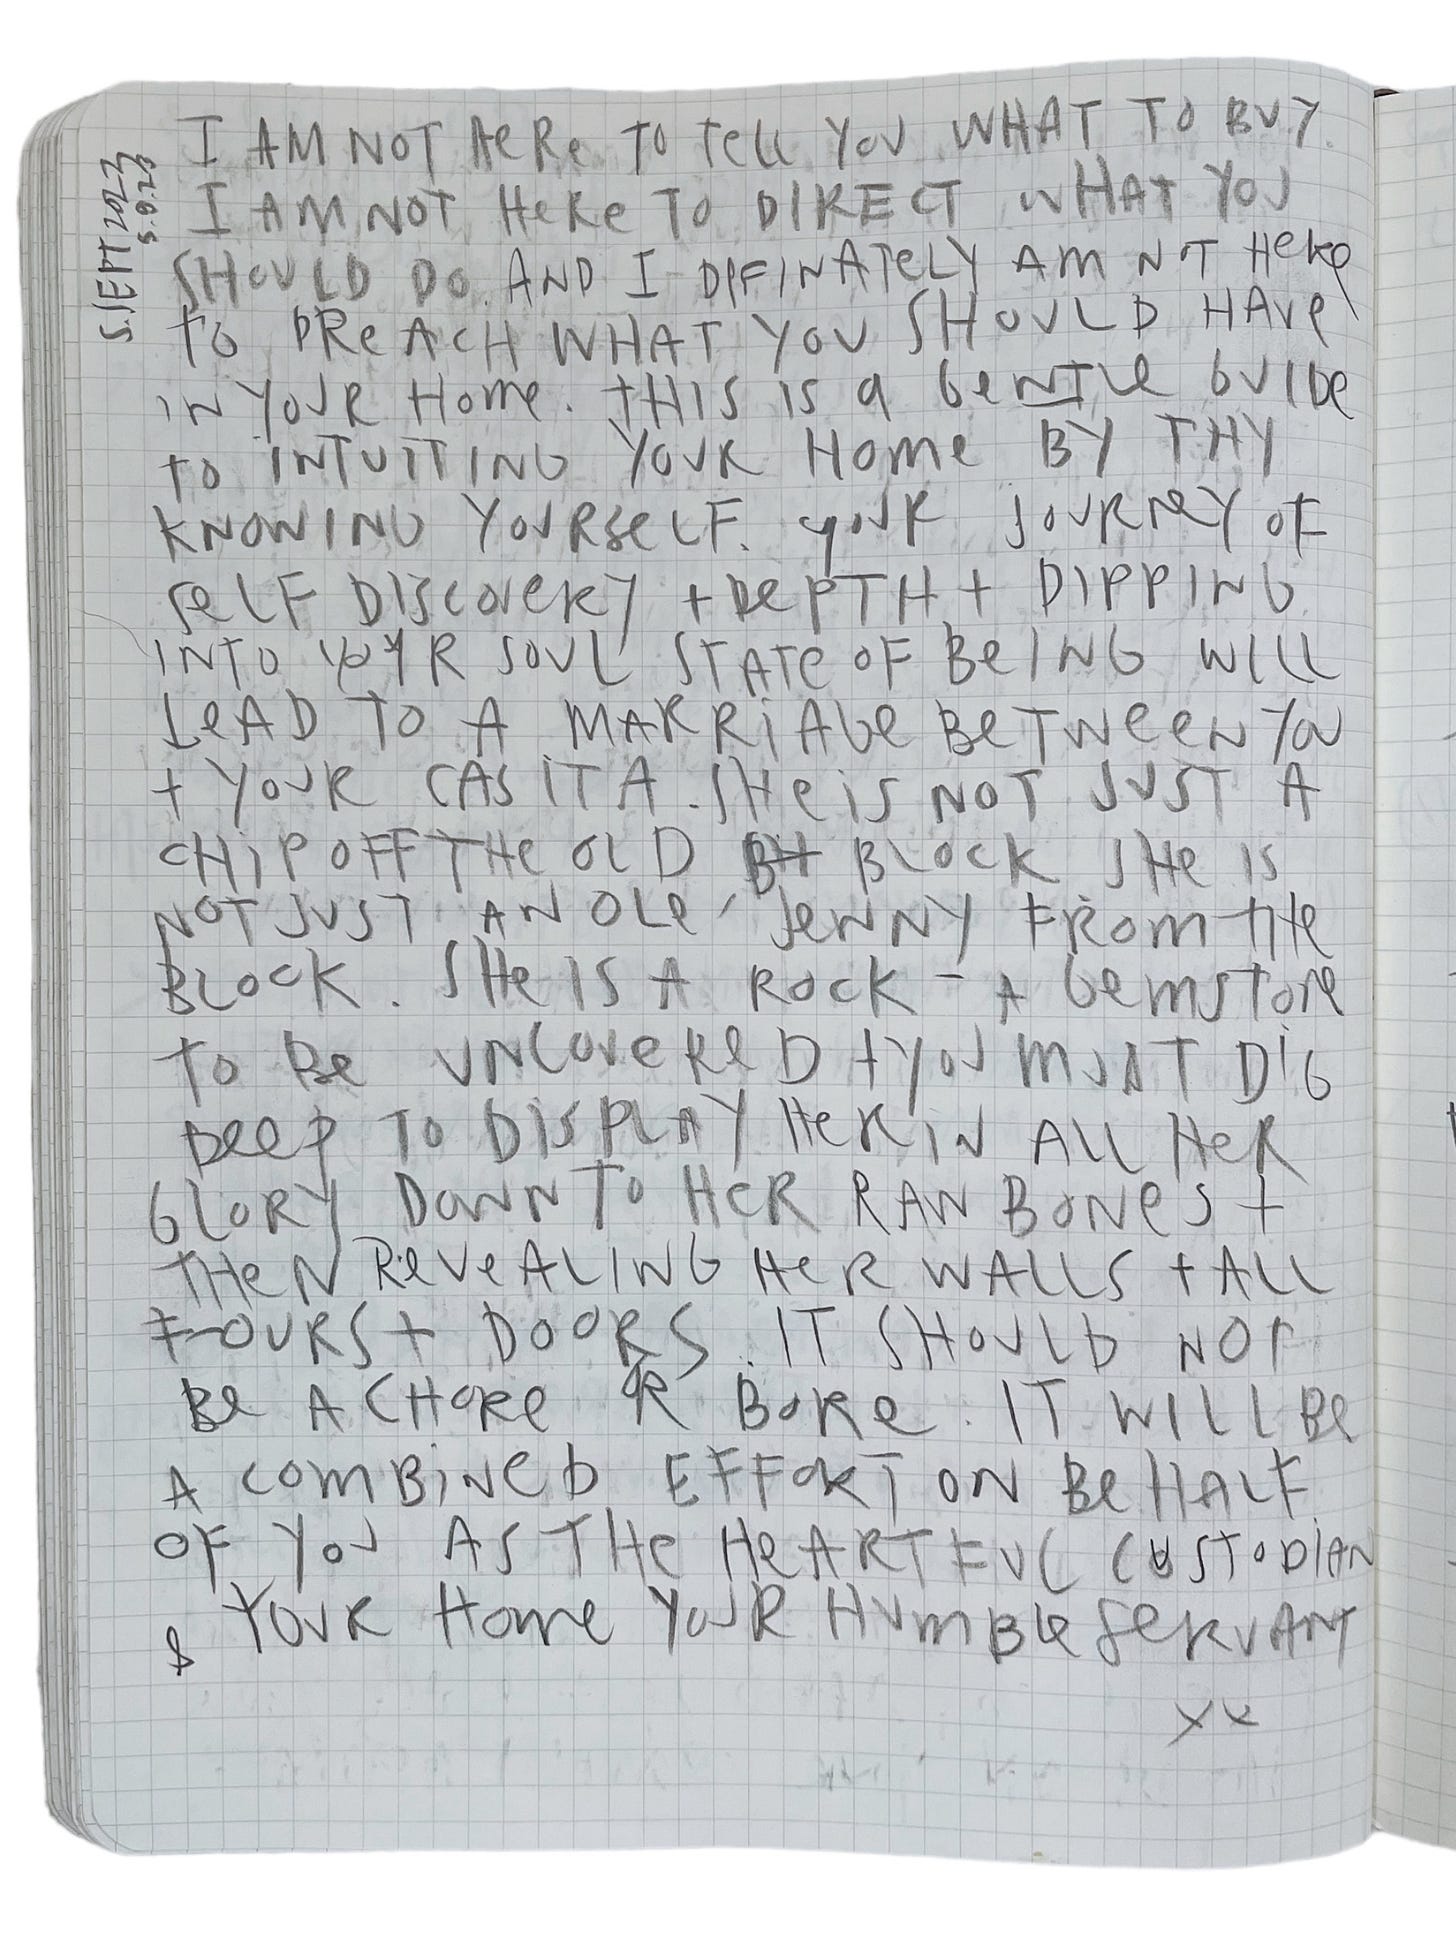 5. SEPT 2023
5.9.23
I AM NOT HERE TO tell YOU WHAT TO BUY.
I AM NOT HERE TO DIRECT WHAT YOU
SHOULD DO. AND I DIFINATELY AM NOT HERE
TO PREACH WHAT YOU SHOULD HAVE
IN YOUR HOME. THIS IS a GENTLE GUIDE
TO INTUITING YOUR HOME BY THY
KNOWING YOURSELF. YOUR JOURNEY OF
SELF DISCOVERY + DEPTH + DIPPING
INTO YOUR SOUL STATE OF BEING WILL
LEAD TO A MARRIAGE BETWEEN YOU
+ YOUR CASITA. SHE IS NOT JUST A
CHIP OFF THE OLD BLOCK SHE IS
NOT JUST AN OLE' JENNY FROM THE
BLOCK. SHE IS A ROCK - A GEMSTONE
TO BE UNCOVERED + YOU MUST DIG
DEEP TO DISPLAY HER IN ALL HER
GLORY DOWN TO HER RAW BONES +
THEN REVEALING HER WALLS + ALL
FOURS + DOORS. IT SHOULD NOT
BE A CHORE OR BORE. IT WILL BE
A COMBINED EFFORT ON BEHALF
OF YOU AS THE HEARTFUL CUSTODIAN
& YOUR HOME YOUR HUMBLE SERVANT
xx